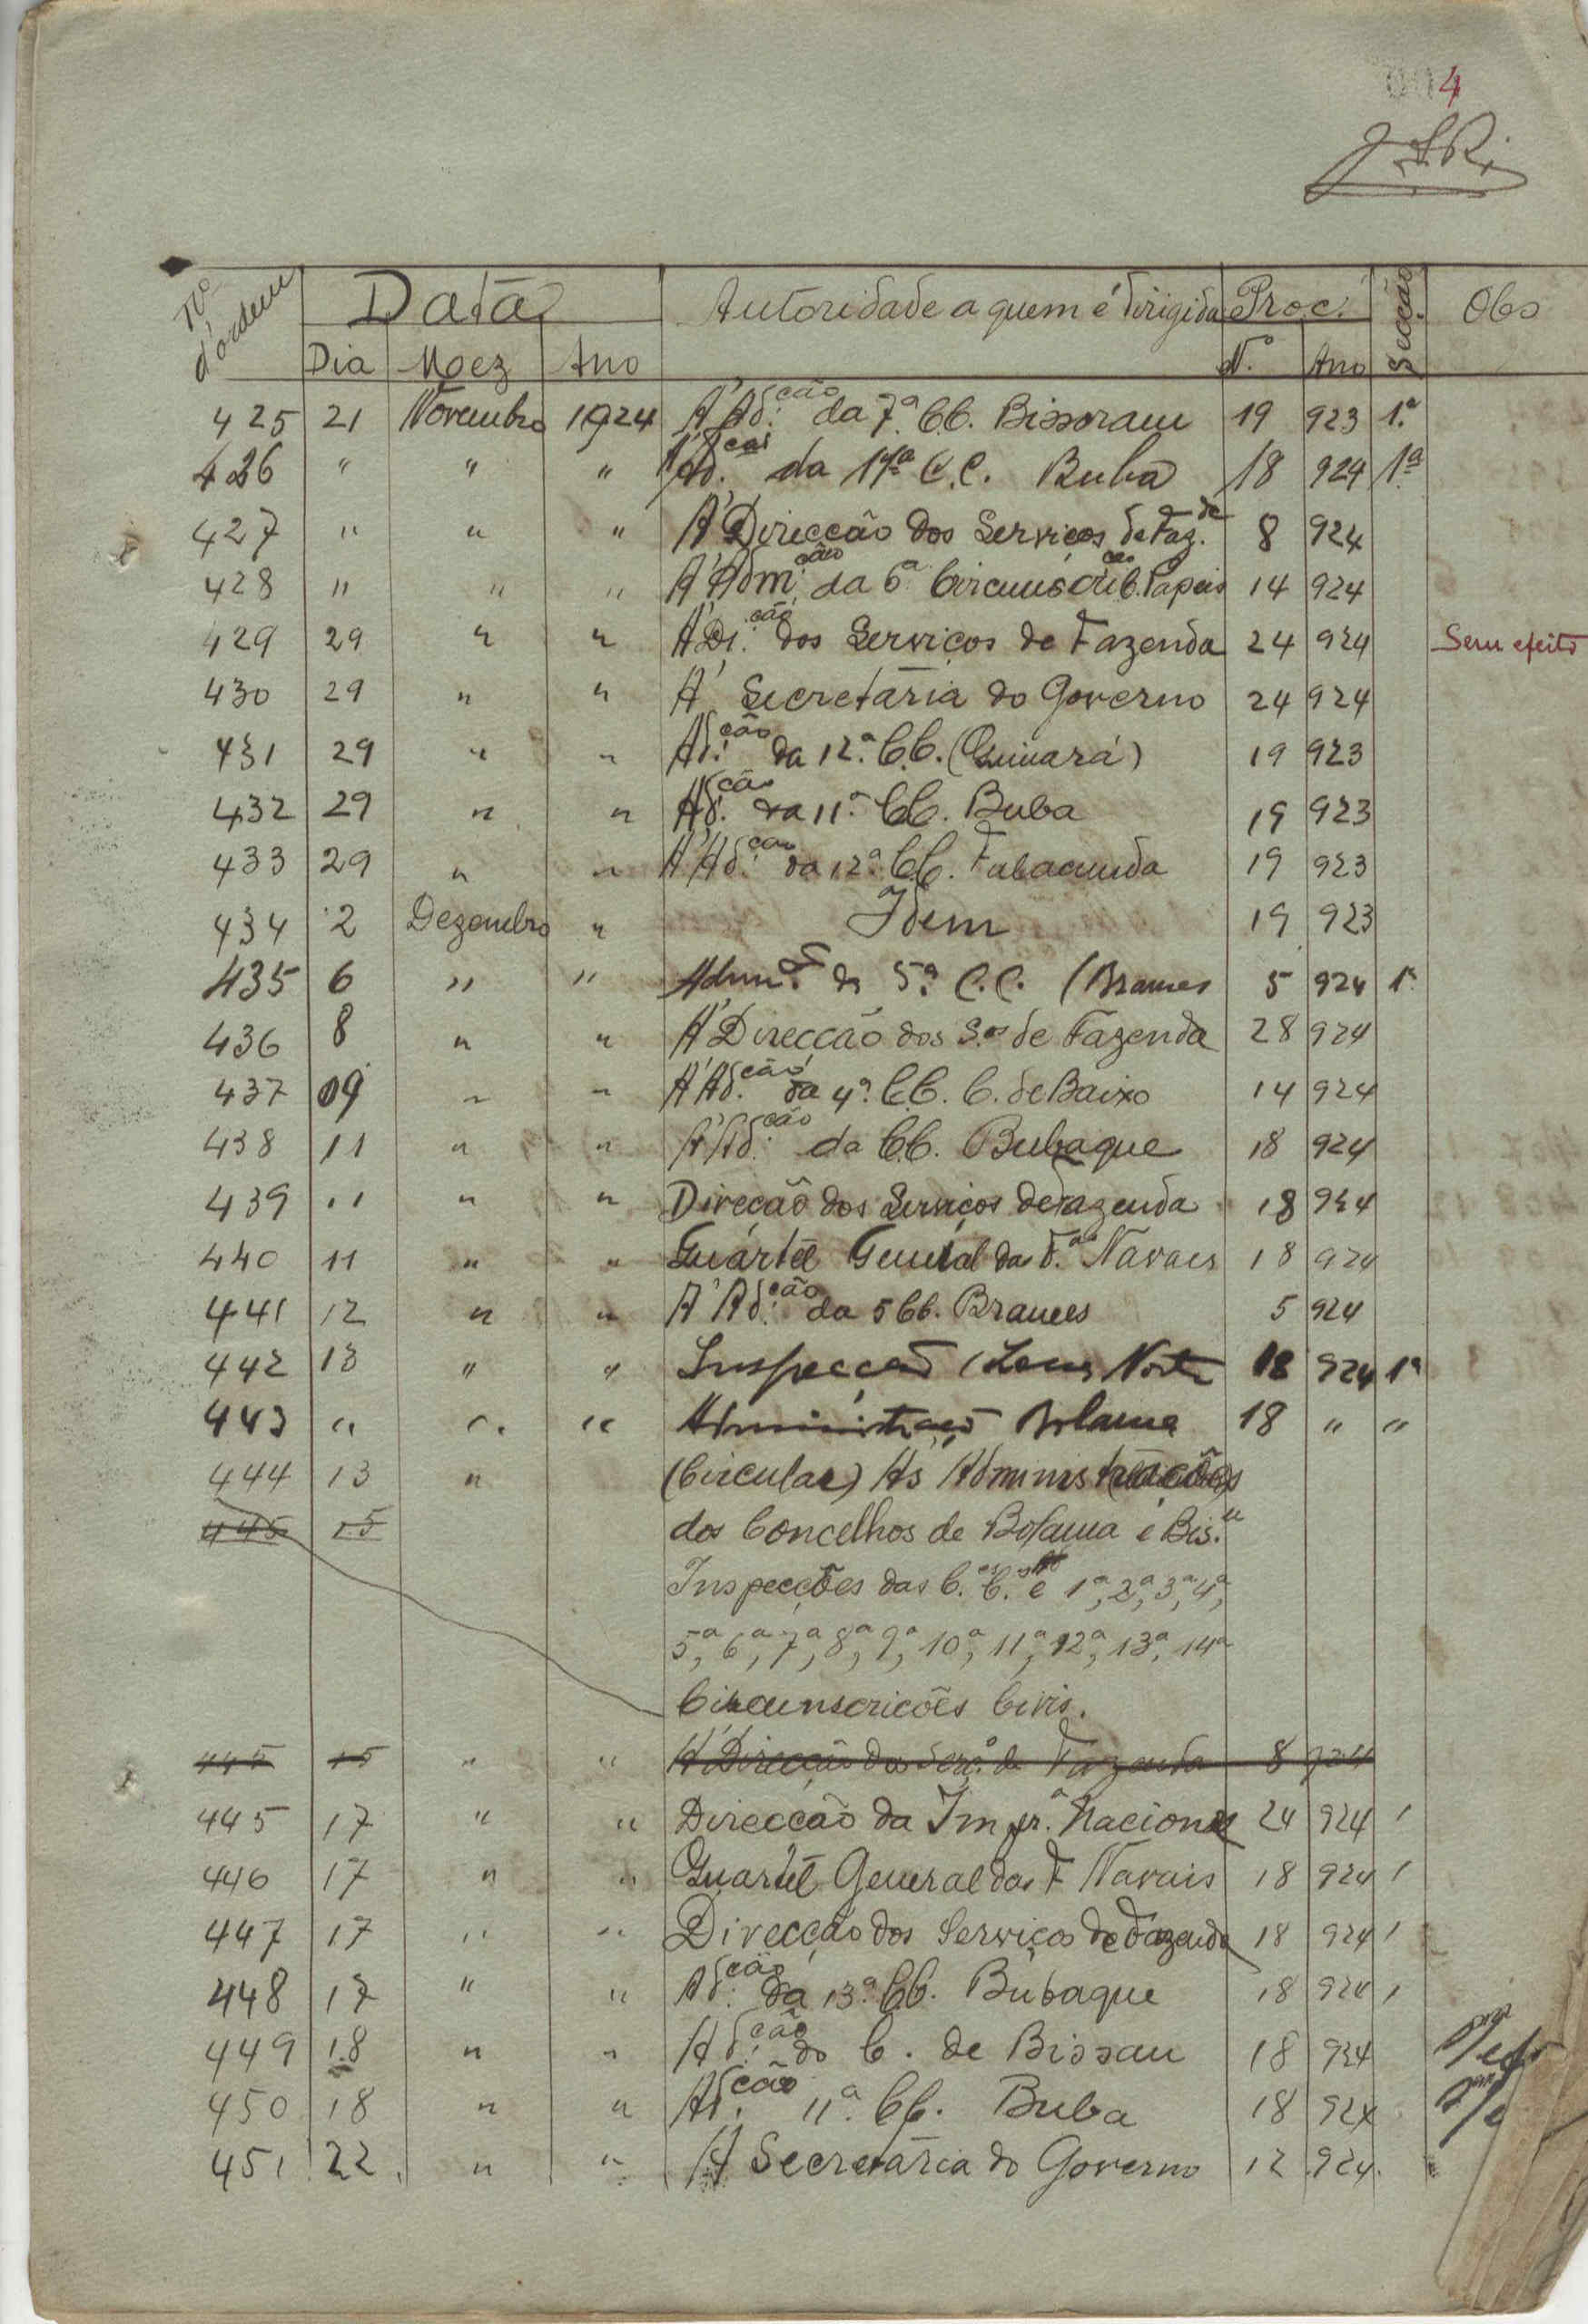 4
Nº d'órdem Data Autoridade a quem é dirigida Proc. Secção Obs
Dia Mez Ano N.º Ano
425 21 Novembro 1924 A' Ad.ção da 7.ª C.C. Bissoram 19 923 1.ª
426 " " " Ad.ção da C.C. Buba 18 924 1ª
427 " " " A' Direcção dos Serviços de Faz.de 8 924
428 " " " A' Adm.ção da 6ª Papeis 14 924
429 29 " " A' Di.ção dos Serviços de Fazenda 24 924 Sem efeito
430 29 " " A' Secretaria do Governo 24 924
431 29 " " Ad.ção da 12.ª C.C. (Quinará) 19 923
432 29 " " Ad.ção da 11.ª C.C. Buba 19 923
433 29 " " A' Ad.ção da 12ª C.C. Fulacunda 19 923
434 2 Dezembro " Idem 19 923
435 6 " " da 5.ª C.C. (Brames 5 924 1ª
436 8 " " A' Direcção dos S.os de Fazenda 28 924
437 09 " " A' Ad.ção da 4.ª C.C. C. de Baixo 14 924
438 11 " " A' Ad.ção da C.C. Bubaque 18 924
439 11 " " Direcção dos Serviços de Fazenda 18 924
440 11 " " Quartel General da F.as Navais 18 924
441 12 " " A' Ad.ção da 5 C.C. Brames 5 924
442 13 " " Inspecção (Zona Norte 18 924 1ª
443 " " " Administração Bolama 18 " "
444 13 " (Circular) Ás Administrações
445 15 dos Concelhos de Bolama e Bis.au
Inspecções das C. C. e 1ª, 2ª, 3ª, 4ª,
5ª, 6ª, 7ª, 8ª, 9ª, 10ª, 11ª, 12ª, 13ª, 14ª
Circunscricões Civis.
445 15 " " A' Direcção dos Serv.º de Fazenda 8 924
445 17 " " Direccão da Impr.ª Nacional 24 924 1
446 17 " " Quartel General das F Navais 18 924 1
447 17 " " Direcção dos Serviços de Fazenda 18 924 1
448 17 " " Ad.ção da 13ª C.C. Bubaque 18 924 1
449 18 " " Ad.ção do C. de Bissau 18 924
450 18 " " Ad.ção 11ª C.C. Buba 18 924
451 22 " " A' Secretaria do Governo 12 924